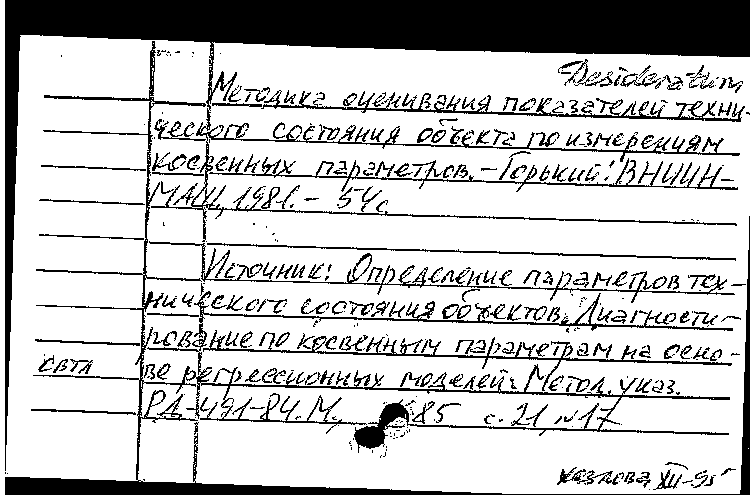 Desideratum
Методика оценивания показателей техни-
ческого состояния объекта по измерениям
косвенных параметров. – Горький: ВНИИН-
МАШ, 1981. – 54 с.
Источник: Определение параметров тех-
нического состояния объектов. Диагности-
рование по косвенным параметрам на осно-
свтл
ве регрессионных моделей: Метод. указ.
РД-491-84. М., 85 с. 21, №17
Козлова XII-95